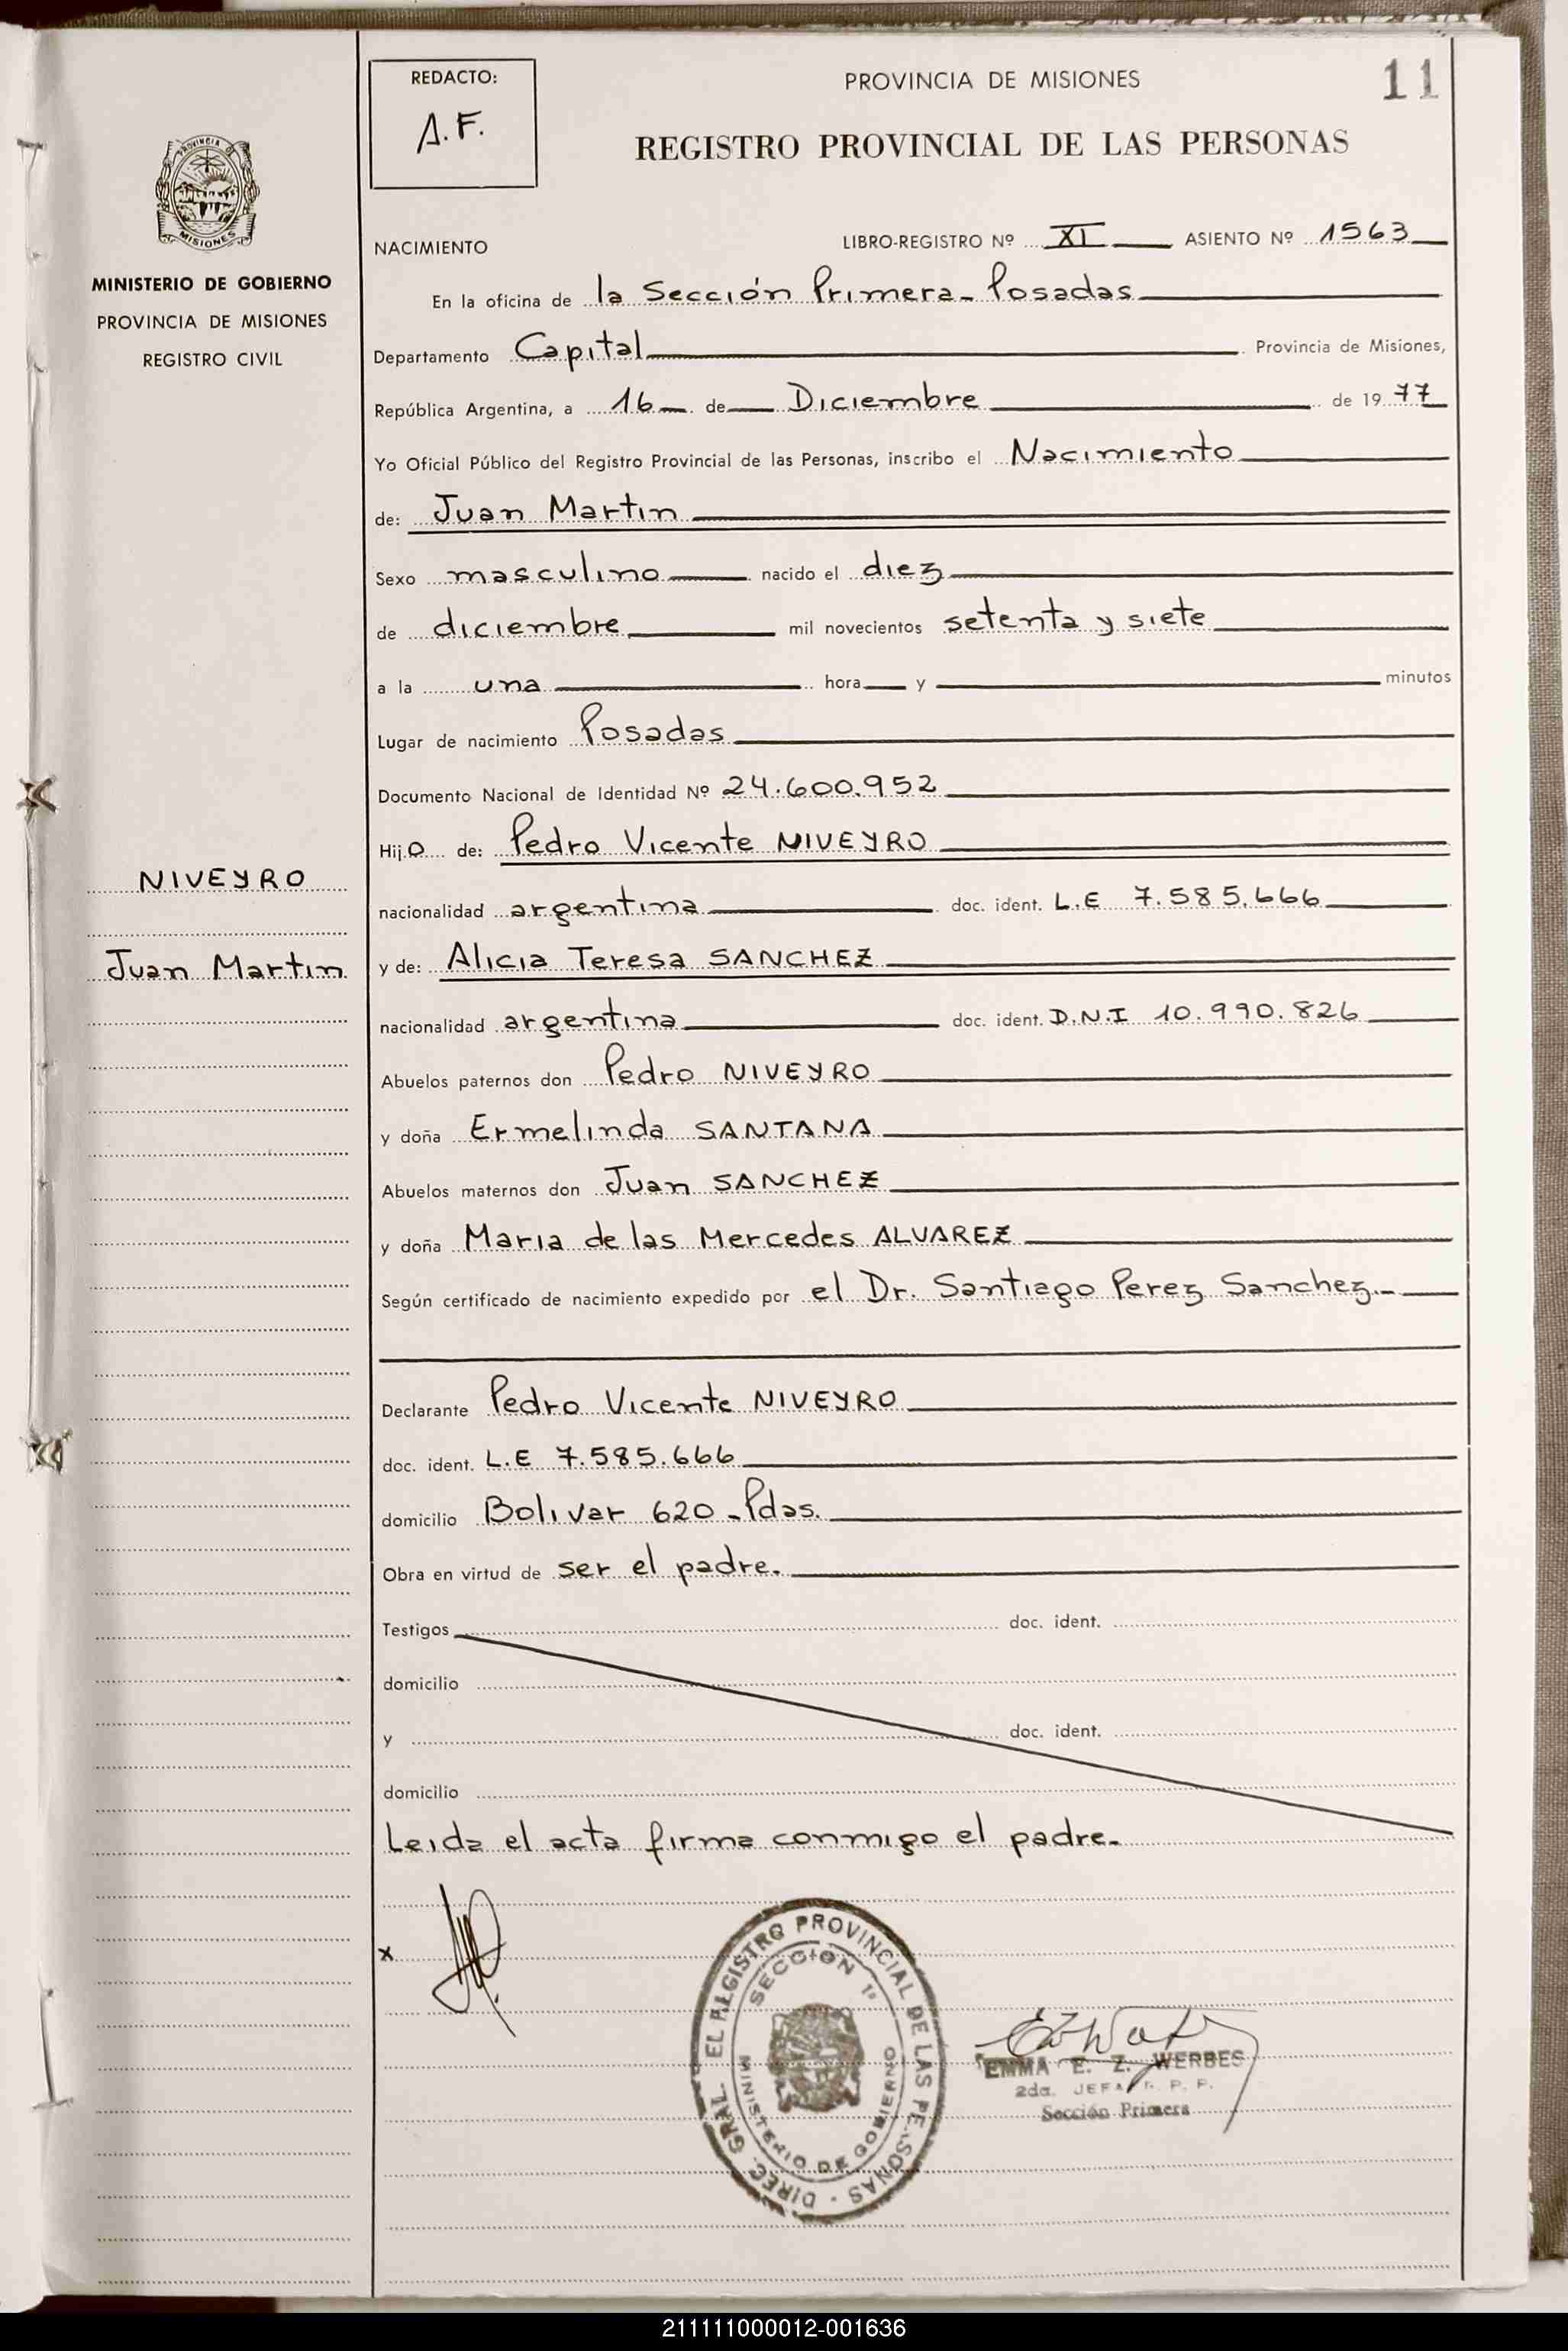 REDACTO:
A.F.
PROVINCIA DE MISIONES
11
REGISTRO PROVINCIAL DE LAS PERSONAS
PROVINCIA DE MISIONES
MINISTERIO DE GOBIERNO
PROVINCIA DE MISIONES
REGISTRO CIVIL
NACIMIENTO LIBRO-REGISTRO Nº XI ASIENTO Nº 1563
En la oficina de la Sección Primera - Posadas
Departamento Capital Provincia de Misiones,
República Argentina, a 16 de Diciembre de 1977
Yo Oficial Público del Registro Provincial de las Personas, inscribo el Nacimiento
de: Juan Martin
Sexo masculino nacido el diez
de diciembre mil novecientos setenta y siete
a la una hora y minutos
Lugar de nacimiento Posadas
Documento Nacional de Identidad Nº 24.600.952
Hijo de: Pedro Vicente NIVEYRO
NIVEYRO
nacionalidad argentina doc. ident. L.E 7.585.666
Juan Martin
y de: Alicia Teresa SANCHEZ
nacionalidad argentina doc. ident. D.N.I 10.990.826
Abuelos paternos don Pedro NIVEYRO
y doña Ermelinda SANTANA
Abuelos maternos don Juan SANCHEZ
y doña Maria de las Mercedes ALVAREZ
Según certificado de nacimiento expedido por el Dr. Santiago Perez Sanchez.-
Declarante Pedro Vicente NIVEYRO
doc. ident. L.E 7.585.666
domicilio Bolivar 620 - Pdas.
Obra en virtud de ser el padre.
Testigos doc. ident.
domicilio
y doc. ident.
domicilio
Leida el acta firma conmigo el padre.
x
DIREC. GRAL. EL REGISTRO PROVINCIAL DE LAS PERSONAS
SECCION 1ª
MINISTERIO DE GOBIERNO
EMMA E. Z. WERBES
2da. JEFA R. P. P.
Sección Primera
211111000012-001636